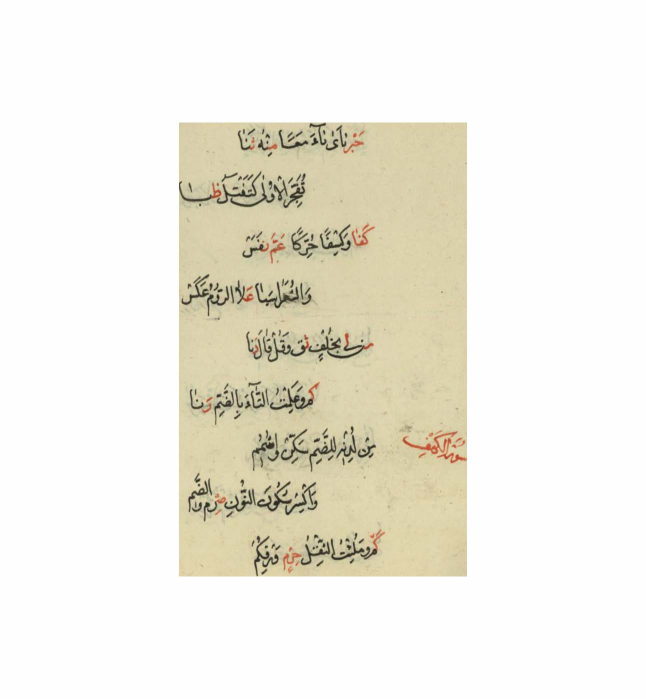 حَبْرٌ نَأَى نَاءَ مَعًا مِنْهُ ثَنَا
تُفَجِّرَ الْاُوْلَى كَتَقْتُلَ ظُبَا
كَفَا وَكِسَفًا حَرِّكَا عَمَّ نَفَسْ
وَالشُّعَرَا سَبَا عَلَا الرُّوْمُ عَكَسْ
مِن لِي بِخُلْفٍ ثِقْ وَقُلْ قَالَ دَنَا
كَمْ وَعَلِمْتُ التَّاءَ بِالضَّمِّ رَنَا
سورة الكهف
مِنْ لَدُنْهُ لِلضَّمِّ سَكِّنْ وَاشْمِمِ
وَاكْسِرْ سُكُونَ النُّونِ صُرِمْ والضَّمِّ
كَمْ وَمُلِئْتُ الثِّقْلُ حِرْمٌ وَرْقِكُمْ